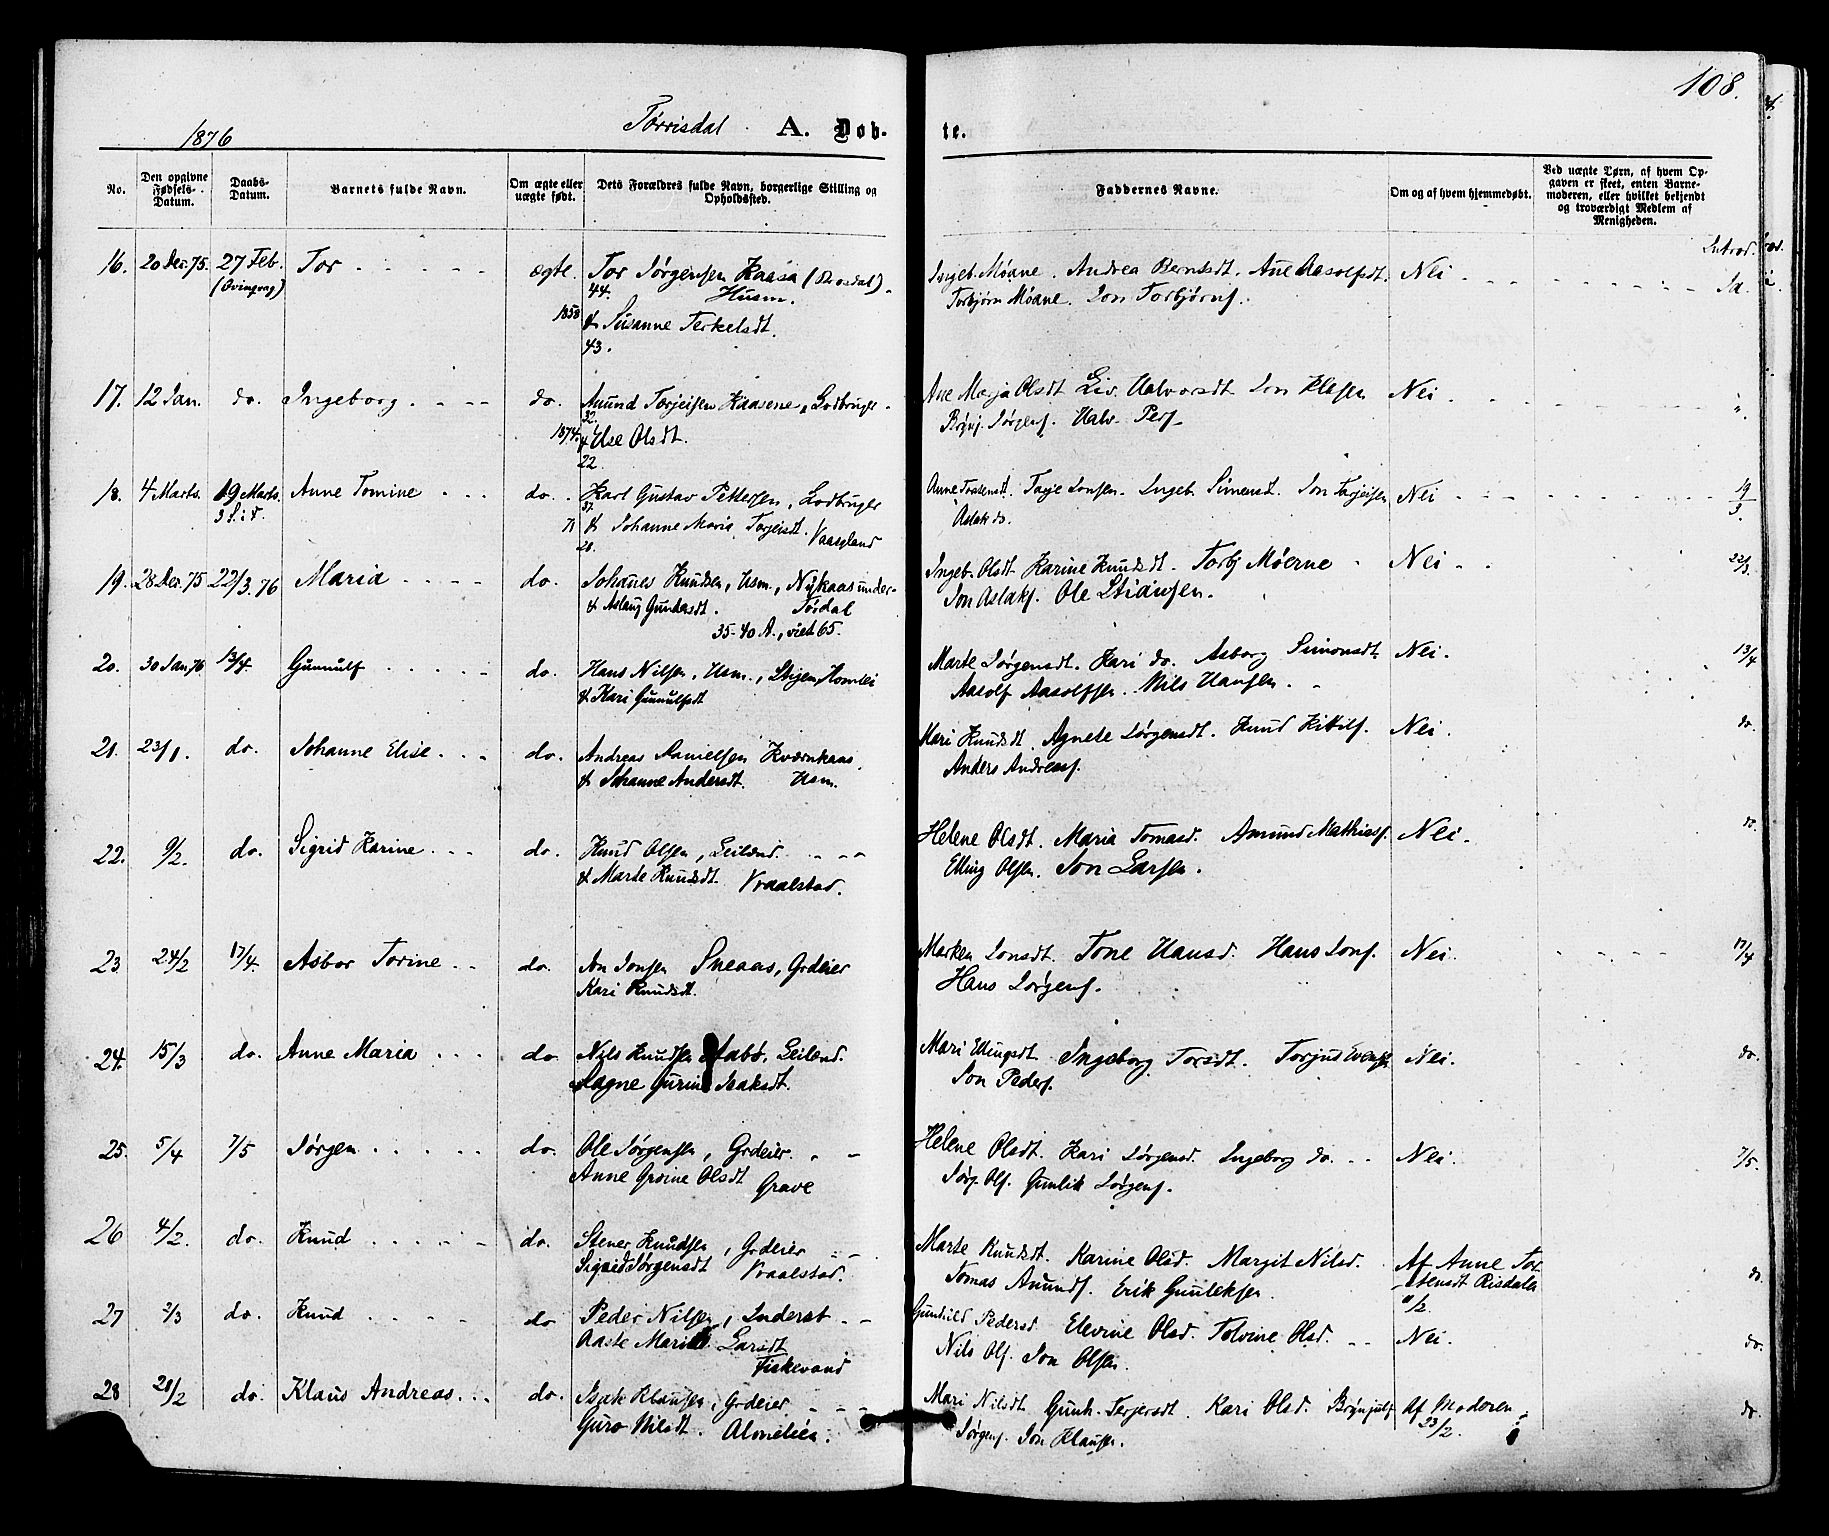 108.
1876 Tørrisdal A. Døb- te.
No.
Den opgivne Fødsels-Datum.
Daabs-Datum.
Barnets fulde Navn.
Om ægte eller uægte født.
Dets Forældres fulde Navn, borgerlige Stilling og Opholdssted.
Faddernes Navne.
Om og af hvem hjemmedøbt.
Ved uægte Børn, af hvem Opgaven er skeet, enten Barnemoderen, eller hvilket bekjendt og troværdigt Medlem af Menigheden.
Introd.
16. 20 Dec. 75. 27 Feb. Tor ægte. Tor Jørgensen Kaasa
44. Husm.
1858 & Susanne Terkelsdt.
43.
Ingeb. Møane. Andrea Berntsdt. Ane Aasolfsdt. Nei
Torbjørn Møane. Jon Torbjørns.
17. 12 Jan. do. Ingeborg do. Amund Torjeisen Kaasene, Lodbruger
32.
1874. & Else Olsdt.
22.
Ane Marja Olsdt. Liv Halvorsdt. Jon Klasen Nei
Brynj. Jørgens. Halv. Pers.
18. 4 Marts. 19 Marts. Anne Tomine do. Karl Gustav Pettersen, Lodbruger
3 S. i F.
37.
& Johanne Maria Torjeisdt. Vaasgland
28.
Tarje Jonsen. Ingeb. Simensdt. Jon Tarjeisen Nei 19/3.
Aslak do.
19. 28 Dec. 75 22/3. 76 Maria do. Johanes Knudsen, Husm., Nykaas under
& Aslaug Gunhasdt. Tørdal
35-40 A., viet 65.
Ingeb. Olsdt. Karine Knudsdt. Torbj Møerne Nei 22/3.
Jon Aslaks. Ole Stiansen.
20. 30 Jan 76 13/4. Gunnulf do. Hans Nilsen, Husm., Stigen, Homlei
& Kari Gunnulfsdt
Marte Jørgensdt. Kari do. Asborg Simonsdt. Nei. 13/4
Aasolf Aasolfsen. Nils Hansen.
21. 23/1. do. Johanne Elise do. Andreas Danielsen Kværnkaas
& Johanne Andersdt. Husm.
Mari Knudsdt. Agnete Jørgensdt. Knud Kittils. Nei. do.
Anders Andreass.
22. 9/2. do. Sigrid Karine do. Knud Olsen, Leilænd.
& Marte Knudsdt. Vraalstad.
Helene Olsdt. Maria Tomasd. Amund Mathiass. Nei. do.
Elling Olsen. Jon Larsen.
23. 24/2 17/4. Asbor Torine do. Jon Jonsen Sneaas, Grdeier
Kari Knudsdt.
Marken Jonsdt. Tone Hansd. Hans Jons. Nei. 17/4
Hans Jørgens.
24. 15/3 do. Anne Maria do. Nils Knudsen Stabø, Leilænd.
Dagne Gurine Isaksdt.
Mari Ellingsdt. Ingeborg Torsdt. Torjus Evens. Nei. do.
Jon Peders.
25. 5/4 7/5 Jørgen do. Ole Jørgensen, Grdeier.
Anne Groine Olsdt Grave
Helene Olsdt. Kari Jørgensd. Ingeborg do. Nei. 7/5.
Jørg. Ols. Gunlik Jørgens.
26 4/2. do. Knud do. Stener Knudsen, Grdeier
Sigrid Jørgensdt Vraalstad.
Marte Knudsdt. Karine Olsd. Margit Nilsd. Af Anne Tor
Tomas Amunds. Erik Gunleksen. bensdt Risdalen
11/2. do.
27 2/3 do. Knud do Peder Nilsen, Inderst
Aaste Marie Larsdt
Fiskevand
Gunhild Pedersd Elevine Olsd. Tolvine Olsd. Nei. do.
Nils Ols. Jon Olsen.
28 20/2 do. Klaus Andreas do. Isak Klausen, Grdeier
Guro Nilsdt. Almelien.
Mari Nilsdt Gunh. Terjersdt. Kari Olsd. Brynjulf Af Moderen do.
Jørgens. Jon Klausen. 23/2.